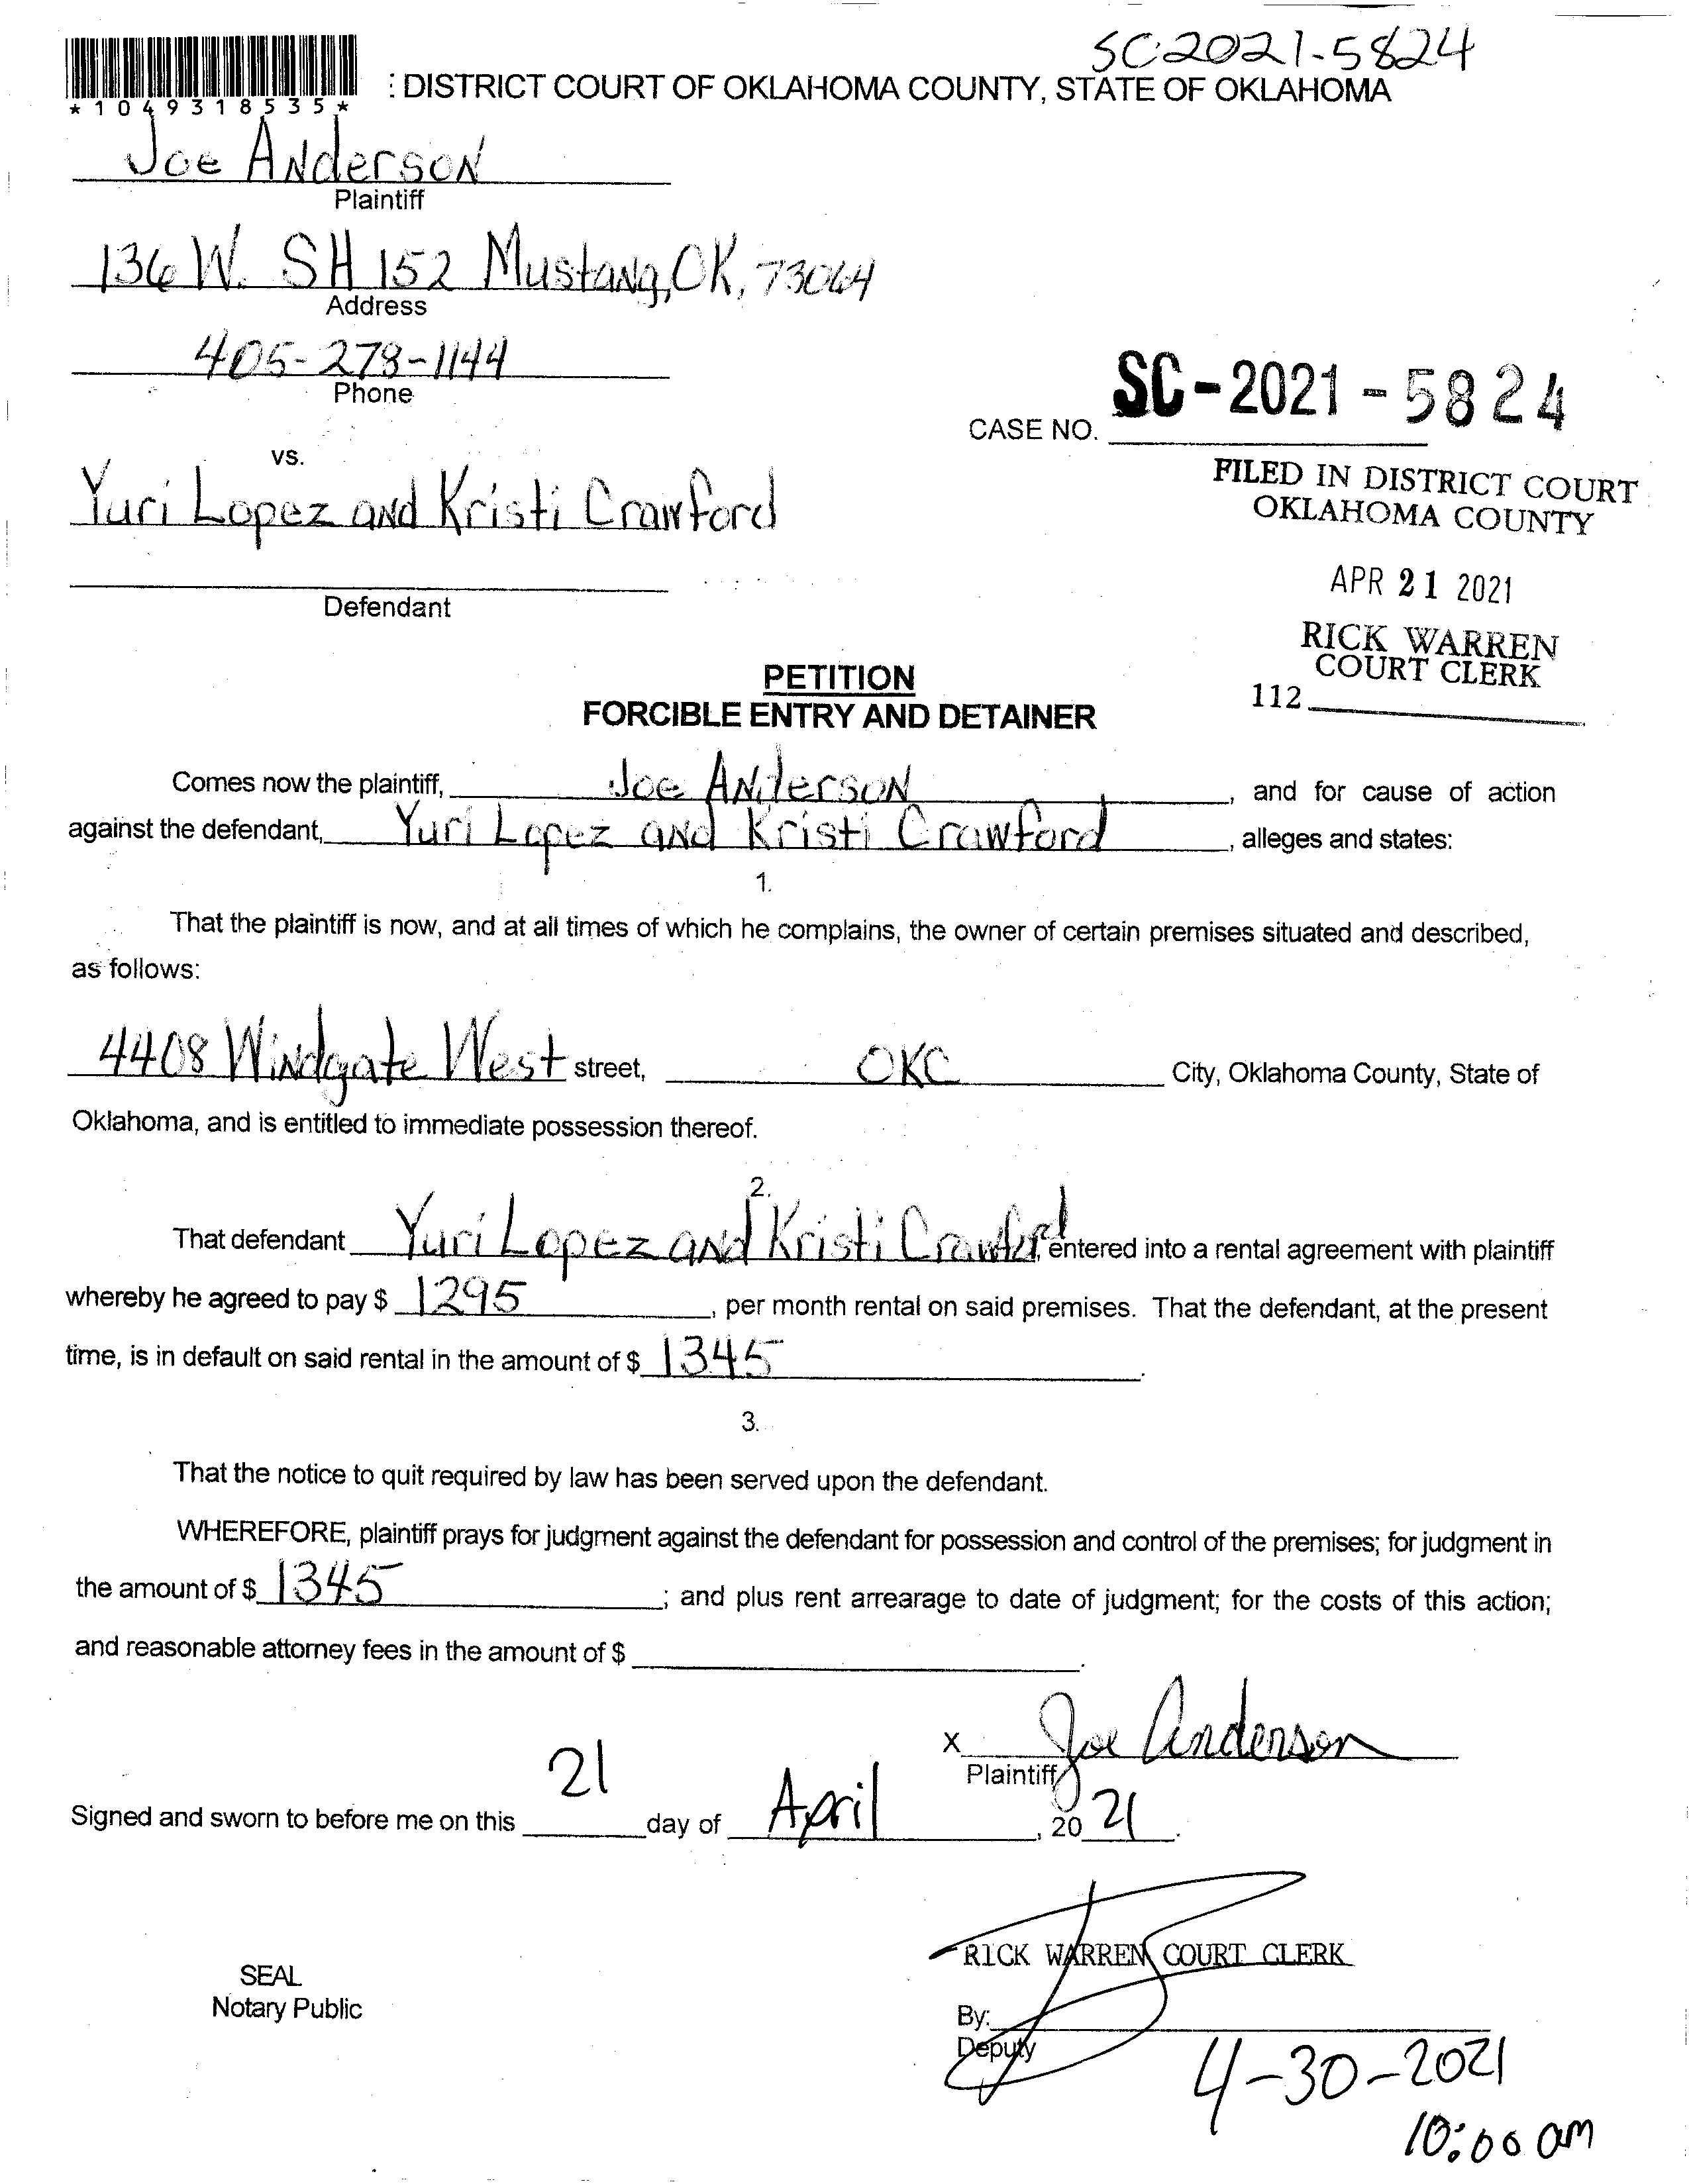 SC2021-5824
: DISTRICT COURT OF OKLAHOMA COUNTY, STATE OF OKLAHOMA
*1049318535*
Joe Anderson
Plaintiff
136 W. SH 152 Mustang, OK, 73064
Address
405-278-1144
Phone
CASE NO. SC-2021-5824
vs.
Yuri Lopez and Kristi Crawford
Defendant
FILED IN DISTRICT COURT
OKLAHOMA COUNTY
APR 21 2021
RICK WARREN
COURT CLERK
112
PETITION
FORCIBLE ENTRY AND DETAINER
Comes now the plaintiff, Joe Anderson, and for cause of action
against the defendant, Yuri Lopez and Kristi Crawford, alleges and states:
1.
That the plaintiff is now, and at all times of which he complains, the owner of certain premises situated and described,
as follows:
4408 Windgate West street, OKC City, Oklahoma County, State of
Oklahoma, and is entitled to immediate possession thereof.
2.
That defendant Yuri Lopez and Kristi Crawford, entered into a rental agreement with plaintiff
whereby he agreed to pay $ 1295, per month rental on said premises. That the defendant, at the present
time, is in default on said rental in the amount of $ 1345.
3.
That the notice to quit required by law has been served upon the defendant.
WHEREFORE, plaintiff prays for judgment against the defendant for possession and control of the premises; for judgment in
the amount of $ 1345; and plus rent arrearage to date of judgment; for the costs of this action;
and reasonable attorney fees in the amount of $ .
X Joe Anderson
Plaintiff
Signed and sworn to before me on this 21 day of April, 2021.
RICK WARREN COURT CLERK
SEAL
Notary Public
By:
Deputy
4-30-2021
10:00 am